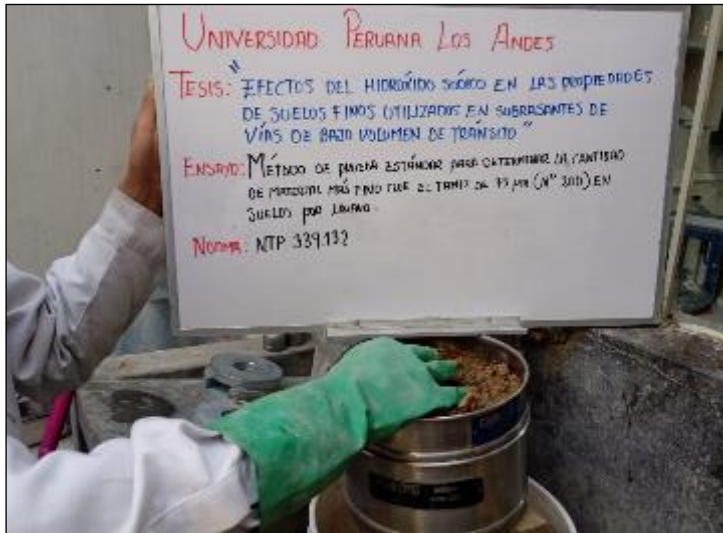 UNIVERSIDAD PERUANA LOS ANDES
TESIS: "EFECTOS DEL HIDRÓXIDO SÓDICO EN LAS PROPIEDADES
DE SUELOS FINOS UTILIZADOS EN SUBRASANTES DE
VÍAS DE BAJO VOLUMEN DE TRÁNSITO"
ENSAYO: MÉTODO DE PRUEBA ESTÁNDAR PARA DETERMINAR LA CANTIDAD
DE MATERIAL MÁS FINO QUE EL TAMIZ DE 75 µm (N° 200) EN
SUELOS POR LAVADO.
NORMA: NTP 339.132